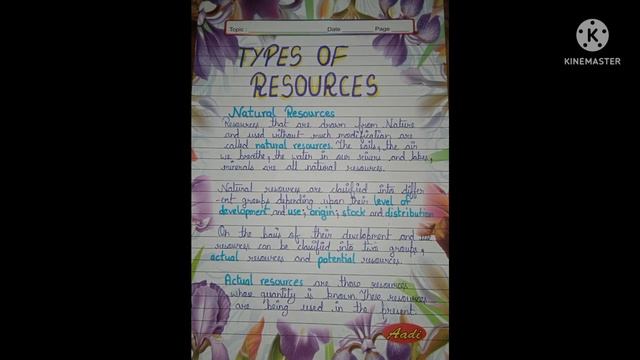 Topic Date Page
KINEMASTER
TYPES OF
RESOURCES
Natural Resources
Resources that are drawn from Nature
and used without much modification are
called natural resources. The soils, the air
we breathe, the water in our rivers and lakes,
minerals are all natural resources.
Natural resources are classified into differ
-ent groups depending upon their level of
development and use; origin; stock and distribution
On the basis of their development and use
resources can be classified into two groups,
actual resources and potential resources.
Actual resources are those resources
whose quantity is known. These resources
are being used in the present.
Aadi